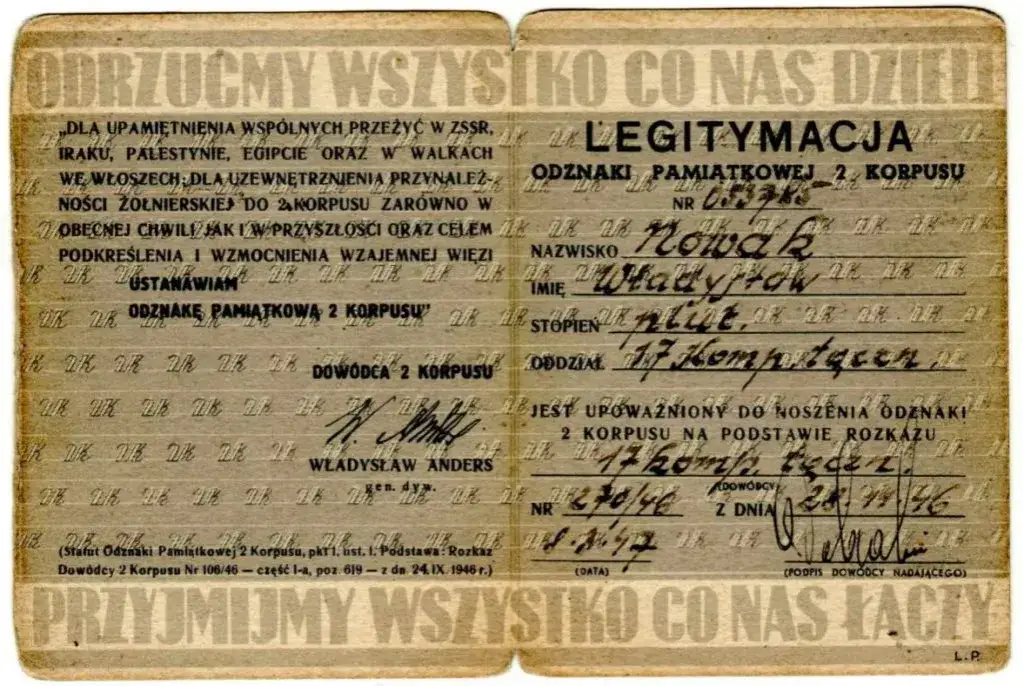 ODRZUĆMY WSZYSTKO CO NAS DZIELI
„DLA UPAMIĘTNIENIA WSPÓLNYCH PRZEŻYĆ W ZSSR,
IRAKU, PALESTYNIE, EGIPCIE ORAZ W WALKACH
WE WŁOSZECH; DLA UZEWNĘTRZNIENIA PRZYNALEŻ-
NOŚCI ŻOŁNIERSKIEJ DO 2 KORPUSU ZARÓWNO W
OBECNEJ CHWILI JAK I W PRZYSZŁOŚCI ORAZ CELEM
PODKREŚLENIA I WZMOCNIENIA WZAJEMNEJ WIĘZI
USTANAWIAM
ODZNAKĘ PAMIĄTKOWĄ 2 KORPUSU"
DOWÓDCA 2 KORPUSU
WŁADYSŁAW ANDERS
gen. dyw.
(Statut Odznaki Pamiątkowej 2 Korpusu, pkt 1, ust. 1. Podstawa: Rozkaz
Dowódcy 2 Korpusu Nr 106/46 — część I-a, poz. 619 — z dn. 24. IX. 1946 r.)
LEGITYMACJA
ODZNAKI PAMIĄTKOWEJ 2 KORPUSU
NR
NAZWISKO Nowak
IMIĘ Władysław
STOPIEŃ plut.
ODDZIAŁ 17 Komp. łączn.
JEST UPOWAŻNIONY DO NOSZENIA ODZNAKI
2 KORPUSU NA PODSTAWIE ROZKAZU
17 komp. łączn.
(DOWÓDCY)
NR 270/46 Z DNIA 28.11.46
8.3.47
(DATA) (PODPIS DOWÓDCY NADAJĄCEGO)
PRZYJMIJMY WSZYSTKO CO NAS ŁĄCZY
L.P.